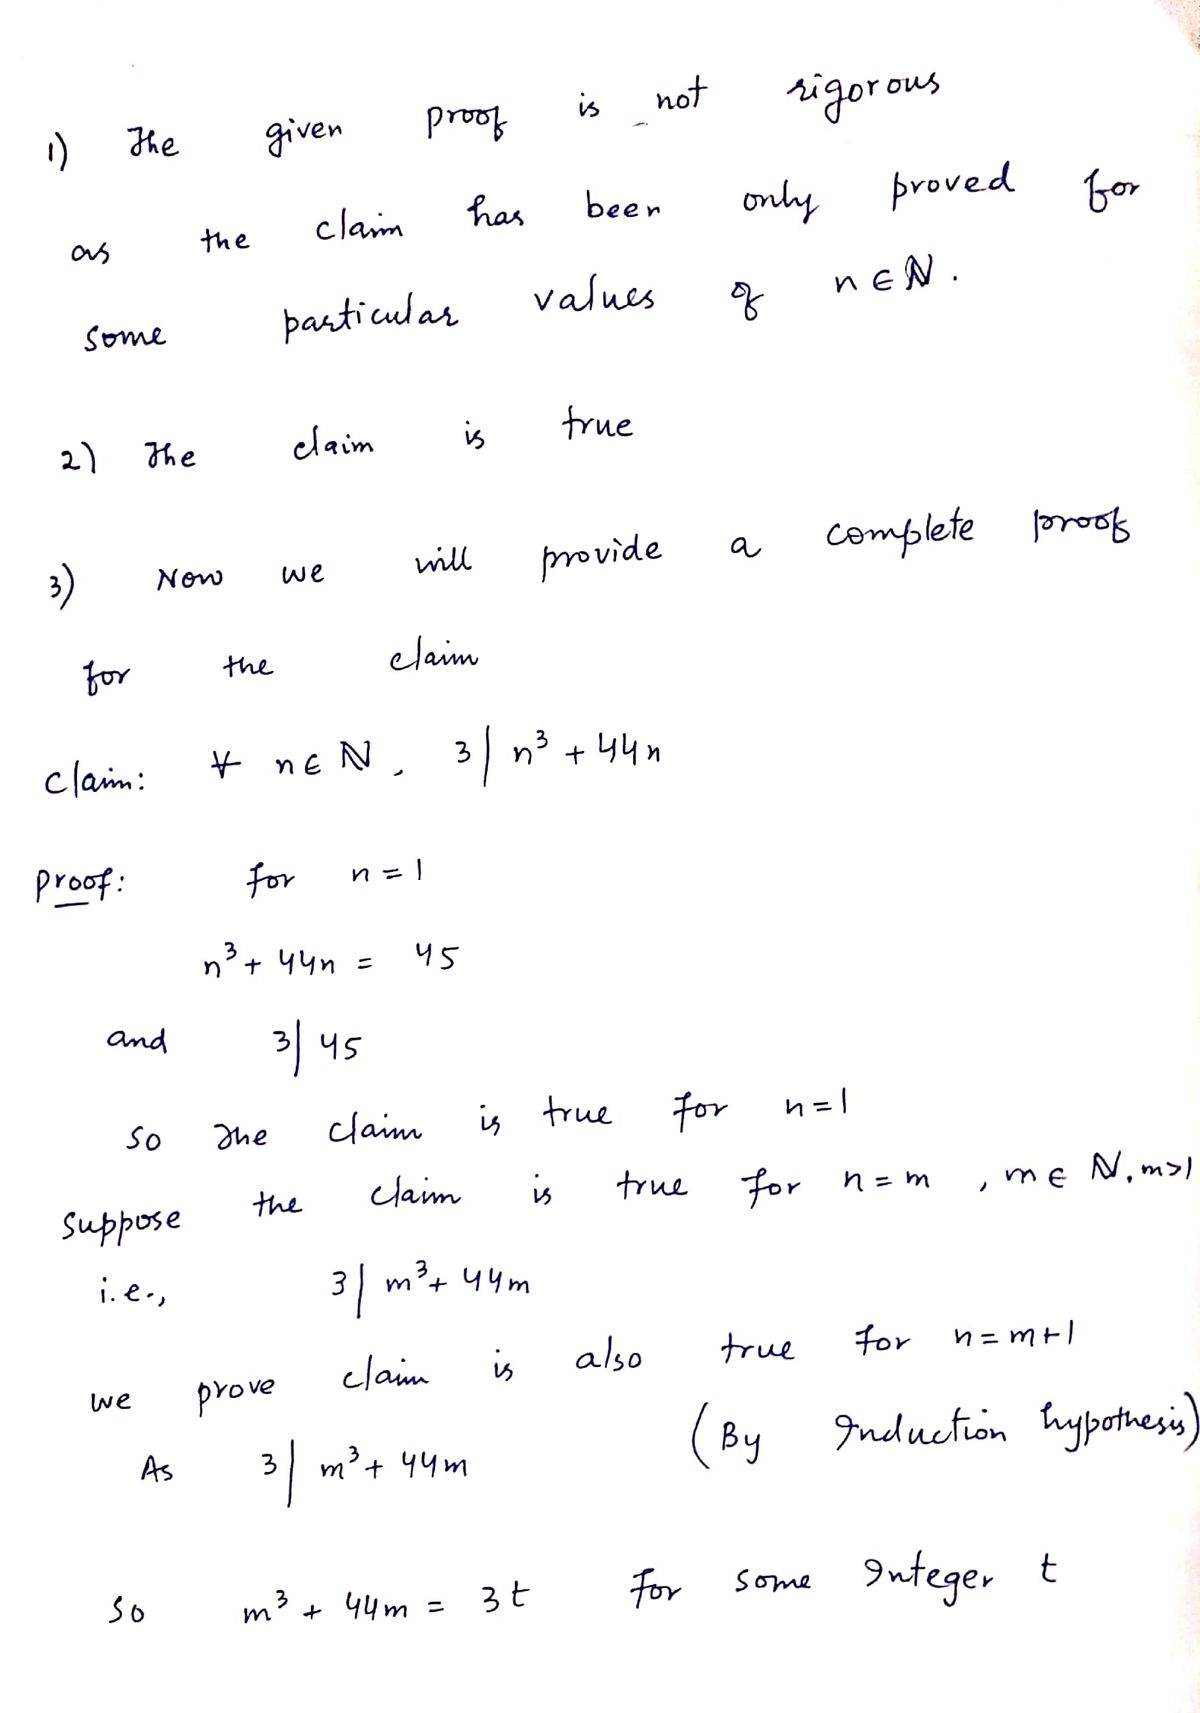 1) The given proof is not rigorous
as the claim has been only proved for
some particular values of n ∈ ℕ.
2) The claim is true
3) Now we will provide a complete proof
for the claim
Claim: ∀ n ∈ ℕ, 3 | n³ + 44n
Proof: for n = 1
n³ + 44n = 45
and 3 | 45
So the claim is true for n = 1
Suppose the claim is true for n = m , m ∈ ℕ, m>1
i.e., 3 | m³ + 44m
we prove claim is also true for n = m+1
As 3 | m³ + 44m (By Induction hypothesis)
So m³ + 44m = 3t for some Integer t